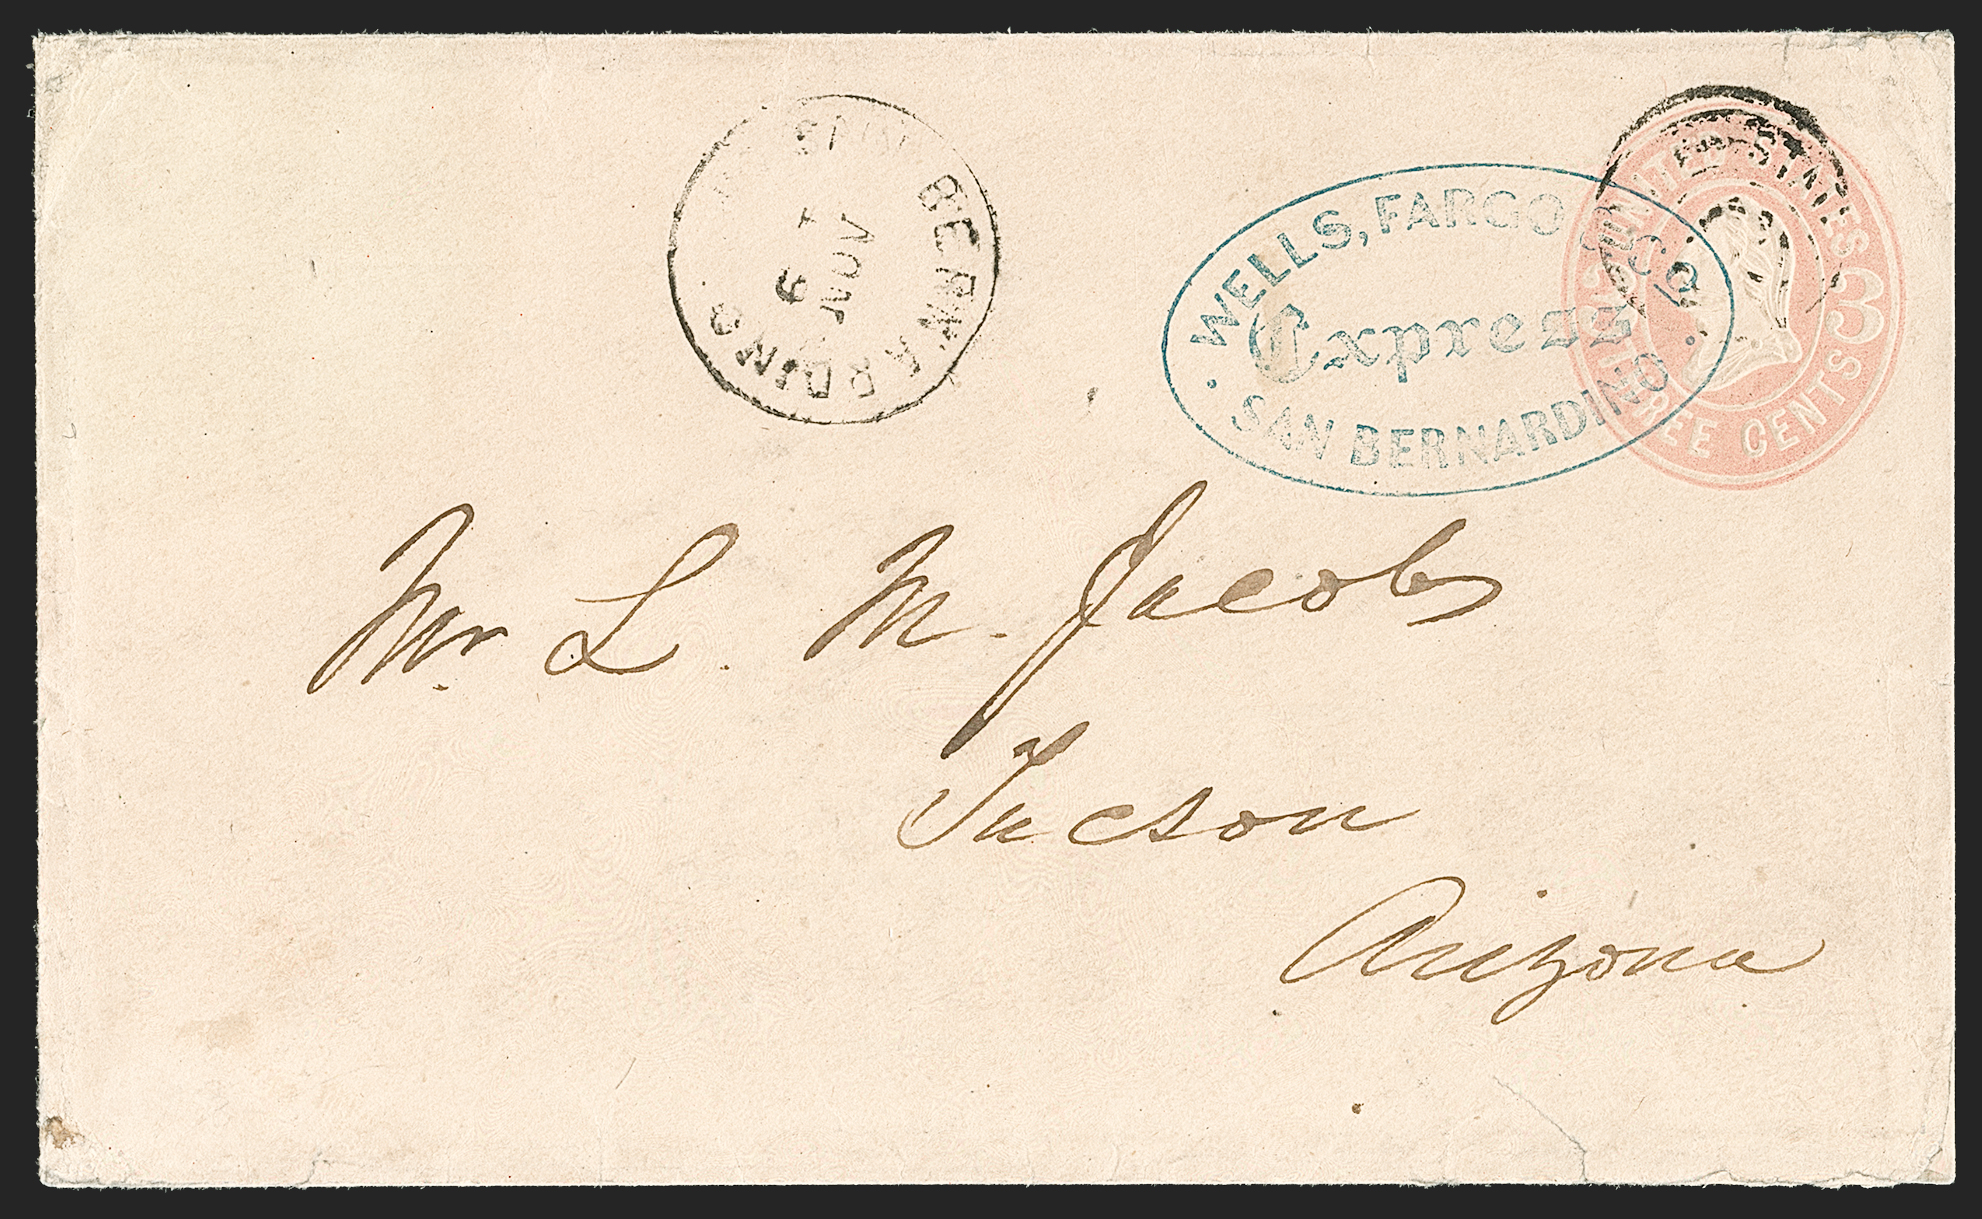 BERNARDINO
NOV
WELLS, FARGO & CO.
Express
SAN BERNARDINO
UNITED STATES
3
THREE CENTS
Mr. L. M. Jacobs
Tucson
Arizona